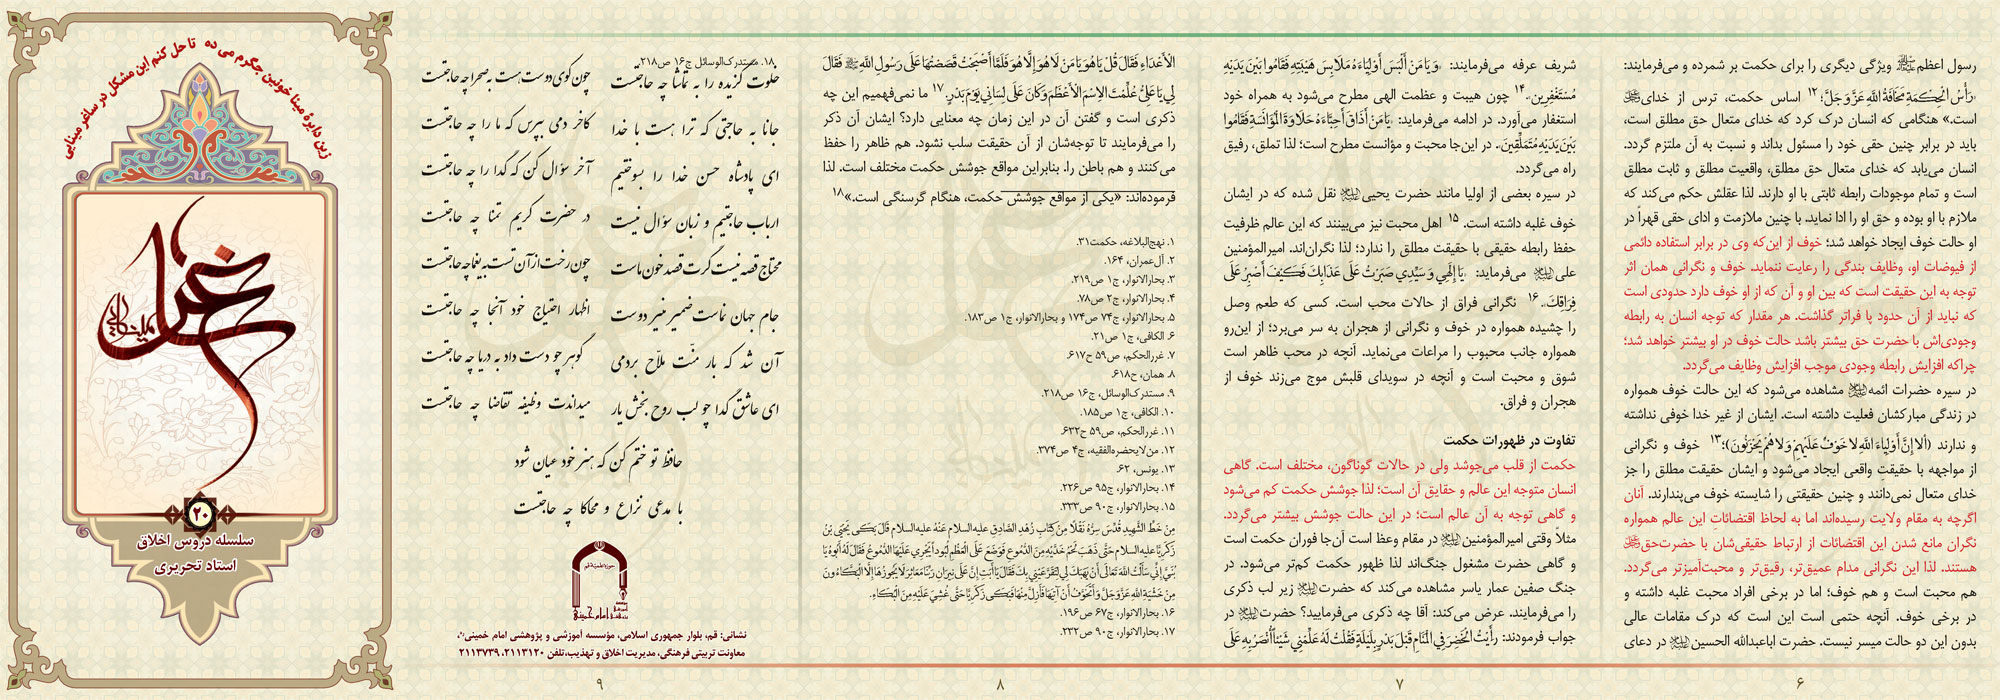 رسول اعظم ویژگی دیگری را برای حکمت بر شمرده و می‌فرمایند:
«رَأْسُ الْحِكْمَةِ مَخَافَةُ اللهِ عَزَّوَجَلَّ؛۱۲ اساس حکمت، ترس از خدای
است.» هنگامی که انسان درک کرد که خدای متعال حق مطلق است،
باید در برابر چنین حقی خود را مسئول بداند و نسبت به آن ملتزم گردد.
انسان می‌یابد که خدای متعال حق مطلق، واقعیت مطلق و ثابت مطلق
است و تمام موجودات رابطه ثابتی با او دارند. لذا عقلش حکم می‌کند که
ملازم با او بوده و حق او را ادا نماید. با چنین ملازمت و ادای حقی قهراً در
او حالت خوف ایجاد خواهد شد؛ خوف از این‌که وی در برابر استفاده دائمی
از فیوضات او، وظایف بندگی را رعایت ننماید. خوف و نگرانی همان اثر
توجه به این حقیقت است که بین او و آن که از او خوف دارد حدودی است
که نباید از آن حدود پا فراتر گذاشت. هر مقدار که توجه انسان به رابطه
وجودی‌اش با حضرت حق بیشتر باشد حالت خوف در او بیشتر خواهد شد؛
چراکه افزایش رابطه وجودی موجب افزایش وظایف می‌گردد.
در سیره حضرات ائمه مشاهده می‌شود که این حالت خوف همواره
در زندگی مبارکشان فعلیت داشته است. ایشان از غیر خدا خوفی نداشته
و ندارند (أَلا إِنَّ أَوْلِيَاءَ اللهِ لا خَوْفٌ عَلَيْهِمْ وَلا هُمْ يَحْزَنُونَ)؛۱۳ خوف و نگرانی
از مواجهه با حقیقت واقعی ایجاد می‌شود و ایشان حقیقت مطلق را جز
خدای متعال نمی‌دانند و چنین حقیقتی را شایسته خوف می‌پندارند. آنان
اگرچه به مقام ولایت رسیده‌اند اما به لحاظ اقتضائات این عالم همواره
نگران مانع شدن این اقتضائات از ارتباط حقیقی‌شان با حضرت‌حق
هستند. لذا این نگرانی مدام عمیق‌تر، رقیق‌تر و محبت‌آمیزتر می‌گردد.
هم محبت است و هم خوف؛ اما در برخی افراد محبت غلبه داشته و
در برخی خوف. آنچه حتمی است این است که درک مقامات عالی
بدون این دو حالت میسر نیست. حضرت اباعبدالله الحسین در دعای
۶
شریف عرفه می‌فرمایند: «وَيَا مَنْ أَلْبَسَ أَوْلِيَاءَهُ مَلَابِسَ هَيْبَتِهِ فَقَامُوا بَيْنَ يَدَيْهِ
مُسْتَغْفِرِينَ».۱۴ چون هیبت و عظمت الهی مطرح می‌شود به همراه خود
استغفار می‌آورد. در ادامه می‌فرماید: «يَا مَنْ أَذَاقَ أَحِبَّاءَهُ حَلَاوَةَ الْمُؤَانَسَةِ فَقَامُوا
بَيْنَ يَدَيْهِ مُتَمَلِّقِينَ». در این‌جا محبت و مؤانست مطرح است؛ لذا تملق، رفیق
راه می‌گردد.
در سیره بعضی از اولیا مانند حضرت یحیی نقل شده که در ایشان
خوف غلبه داشته است. ۱۵ اهل محبت نیز می‌بینند که این عالم ظرفیت
حفظ رابطه حقیقی با حقیقت مطلق را ندارد؛ لذا نگران‌اند. امیرالمؤمنین
علی می‌فرماید: «يَا إِلهِي وَسَيِّدِي صَبَرْتُ عَلَى عَذَابِكَ فَكَيْفَ أَصْبِرُ عَلَى
فِرَاقِكَ». ۱۶ نگرانی فراق از حالات محب است. کسی که طعم وصل
را چشیده همواره در خوف و نگرانی از هجران به سر می‌برد؛ از این‌رو
همواره جانب محبوب را مراعات می‌نماید. آنچه در محب ظاهر است
شوق و محبت است و آنچه در سویدای قلبش موج می‌زند خوف از
هجران و فراق.
تفاوت در ظهورات حکمت
حکمت از قلب می‌جوشد ولی در حالات گوناگون، مختلف است. گاهی
انسان متوجه این عالم و حقایق آن است؛ لذا جوشش حکمت کم می‌شود
و گاهی توجه به آن عالم است؛ در این حالت جوشش بیشتر می‌گردد.
مثلاً وقتی امیرالمؤمنین در مقام وعظ است آن‌جا فوران حکمت است
و گاهی حضرت مشغول جنگ‌اند لذا ظهور حکمت کم‌تر می‌شود. در
جنگ صفین عمار یاسر مشاهده می‌کند که حضرت زیر لب ذکری
را می‌فرمایند. عرض می‌کند: آقا چه ذکری می‌فرمایید؟ حضرت در
جواب فرمودند: رَأَيْتُ الْخَضِرَ فِي الْمَنَامِ قَبْلَ بَدْرٍ بِلَيْلَةٍ فَقُلْتُ لَهُ عَلِّمْنِي شَيْئاً أُنْصَرُ بِهِ عَلَى
۷
الْأَعْدَاءِ فَقَالَ قُلْ يَا هُوَ يَا مَنْ لَا هُوَ إِلَّا هُوَ فَلَمَّا أَصْبَحْتُ قَصَصْتُهَا عَلَى رَسُولِ اللهِ فَقَالَ
لِي يَا عَلِيُّ عُلِّمْتَ الِاسْمَ الْأَعْظَمَ وَكَانَ عَلَى لِسَانِي يَوْمَ بَدْرٍ».۱۷ ما نمی‌فهمیم این چه
ذکری است و گفتن آن در این زمان چه معنایی دارد؟ ایشان آن ذکر
را می‌فرمایند تا توجه‌شان از آن حقیقت سلب نشود. هم ظاهر را حفظ
می‌کنند و هم باطن را. بنابراین مواقع جوشش حکمت مختلف است. لذا
فرموده‌اند: «یکی از مواقع جوشش حکمت، هنگام گرسنگی است.»۱۸
۱. نهج‌البلاغه، حکمت۳۱.
۲. آل‌عمران، ۱۶۴.
۳. بحارالانوار، ج۱ ص۲۱۹.
۴. بحارالانوار، ج۲ ص۷۸.
۵. بحارالانوار، ج۷۴ ص۱۷۴ و بحارالانوار، ج۱ ص۱۸۳.
۶. الکافی، ج۱ ص۲۱.
۷. غررالحکم، ص۵۹ ح۶۱۷.
۸. همان، ح۶۱۸.
۹. مستدرک‌الوسائل، ج۱۶ ص۲۱۸.
۱۰. الکافی، ج۱ ص۱۸۵.
۱۱. غررالحکم، ص۵۹ ح۶۳۲.
۱۲. من‌لایحضره‌الفقیه، ج۴ ص۳۷۴.
۱۳. یونس، ۶۲.
۱۴. بحارالانوار، ج۹۵ ص۲۲۶.
۱۵. بحارالانوار، ج۹۰ ص۳۳۳.
مِنْ خَطِّ الشَّهِيدِ قُدِّسَ سِرُّهُ نَقْلًا مِنْ كِتَابِ زُهْدِ الصَّادِقِ علیه‌السلام عَنْهُ علیه‌السلام قَالَ بَكَى يَحْيَى بْنُ
زَكَرِيَّا علیه‌السلام حَتَّى ذَهَبَ لَحْمُ خَدَّيْهِ مِنَ الدُّمُوعِ فَوَضَعَ عَلَى الْعَظْمِ لُبُوداً يَجْرِي عَلَيْهَا الدُّمُوعُ فَقَالَ لَهُ أَبُوهُ يَا
بُنَيَّ إِنِّي سَأَلْتُ اللهَ تَعَالَى أَنْ يَهَبَكَ لِي لِتُقِرَّ عَيْنِي بِكَ فَقَالَ يَا أَبَتِ إِنَّ عَلَى نِيرَانِ رَبِّنَا مَعَاثِرَ لَا يَجُوزُهَا إِلَّا الْبَكَّاءُونَ
مِنْ خَشْيَةِ اللهِ عَزَّوَجَلَّ وَأَتَخَوَّفُ أَنْ آتِيَهَا فَأَزِلَّ مِنْهَا فَبَكَى زَكَرِيَّا حَتَّى غُشِيَ عَلَيْهِ مِنَ الْبُكَاءِ.
۱۶. بحارالانوار، ج۶۷ ص۱۹۶.
۱۷. بحارالانوار، ج۹۰ ص۲۳۲.
۸
۱۸. مستدرک‌الوسائل ج۱۶ ص۲۱۸.
خلوت گزیده را به تماشا چه حاجتست چون کوی دوست هست به صحرا چه حاجتست
جانا به حاجتی که ترا هست با خدا کاخر دمی بپرس که ما را چه حاجتست
ای پادشاه حسن خدا را بسوختیم آخر سؤال کن که گدا را چه حاجتست
ارباب حاجتیم و زبان سؤال نیست در حضرت کریم تمنا چه حاجتست
محتاج قصه نیست گرت قصد خون ماست چون رخت از آن تست به یغما چه حاجتست
جام جهان نماست ضمیر منیر دوست اظهار احتیاج خود آنجا چه حاجتست
آن شد که بار منّت ملاّح بردمی گوهر چو دست داد به دریا چه حاجتست
ای عاشق گدا چو لب روح بخش یار میداندت وظیفه تقاضا چه حاجتست
حافظ تو ختم کن که هنر خود عیان شود
با مدعی نزاع و محاکا چه حاجتست
حوزه علمیه قم
امام خمینی
نشانی: قم، بلوار جمهوری اسلامی، مؤسسه آموزشی و پژوهشی امام خمینی
معاونت تربیتی فرهنگی، مدیریت اخلاق و تهذیب،تلفن ۲۱۱۳۱۲۰، ۲۱۱۳۷۳۹
۹
زین دایرهٔ مینا خونین جگرم می ده تا حل کنم این مشکل در ساغر مینایی
۲۰
سلسله دروس اخلاق
استاد تحریری